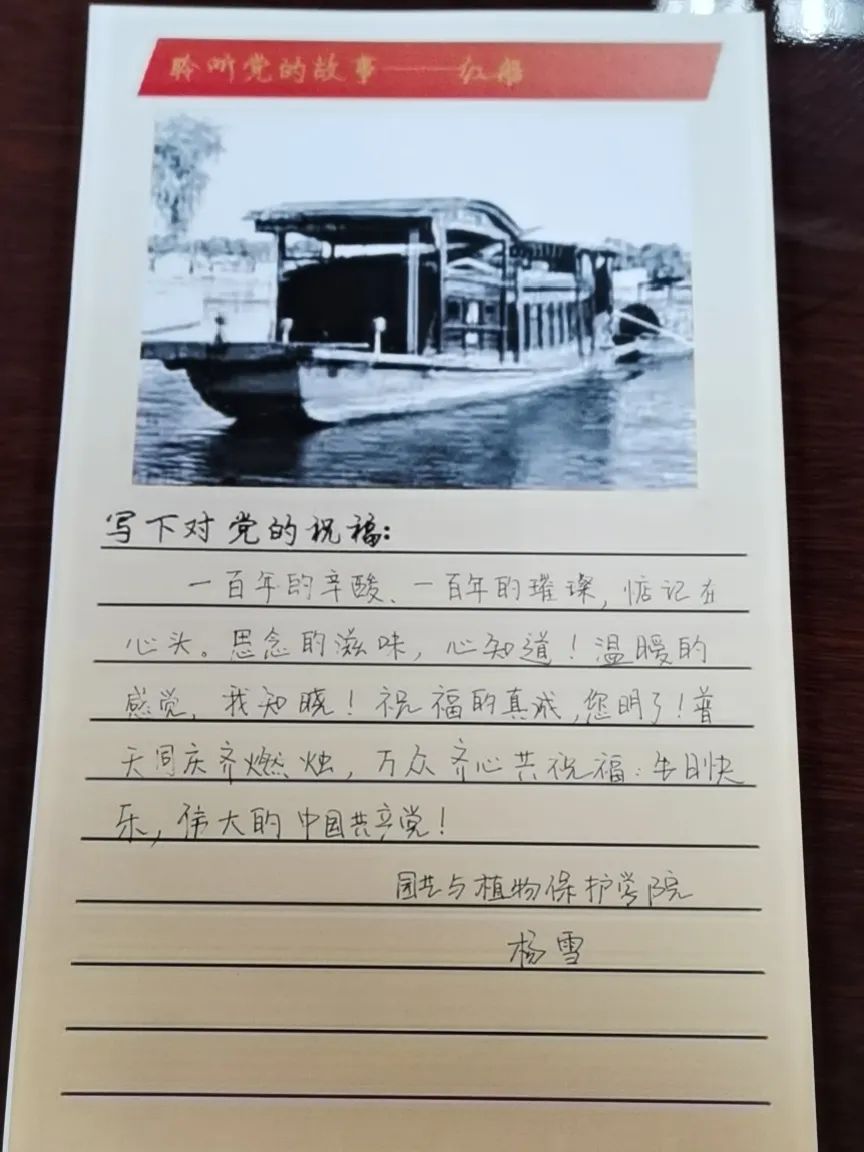 聆听党的故事——红船
写下对党的祝福:
一百年的辛酸、一百年的璀璨,惦记在
心头。思念的滋味,心知道!温暖的
感觉,我知晓!祝福的真诚,您明了!普
天同庆齐燃烛,万众齐心共祝福:生日快
乐,伟大的中国共产党!
园艺与植物保护学院
杨雪